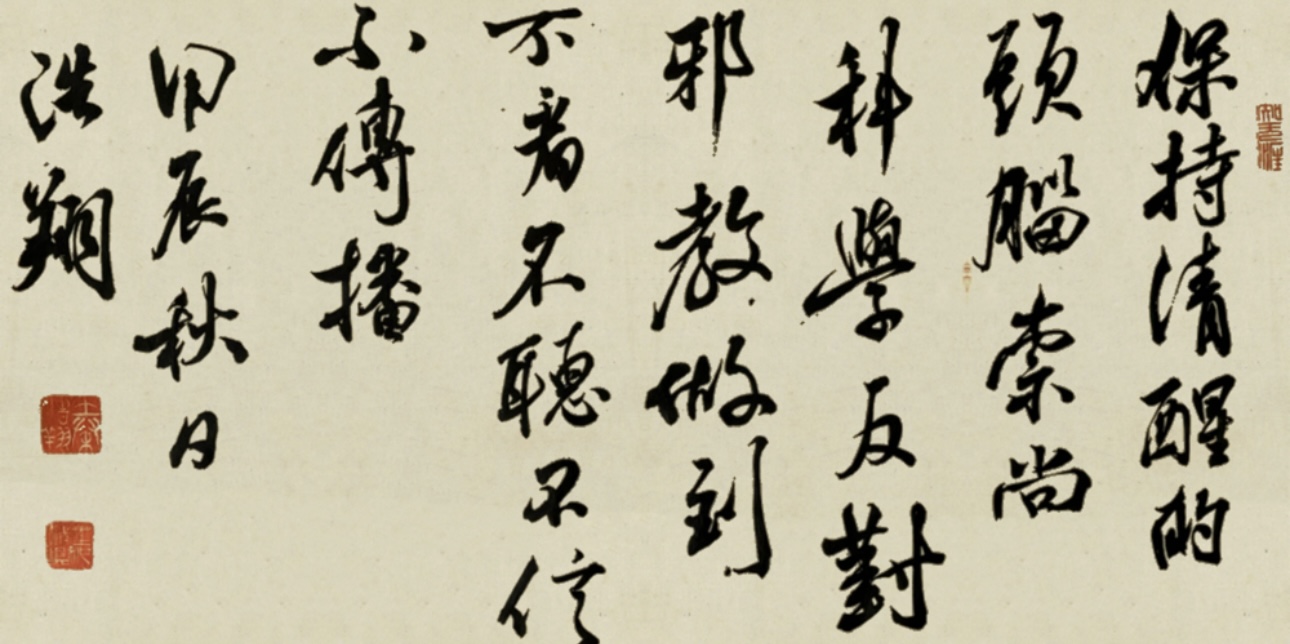 保持清醒的
頭腦崇尚
科學反對
邪教做到
不看不聽不信
不傳播
甲辰秋月
浩翔